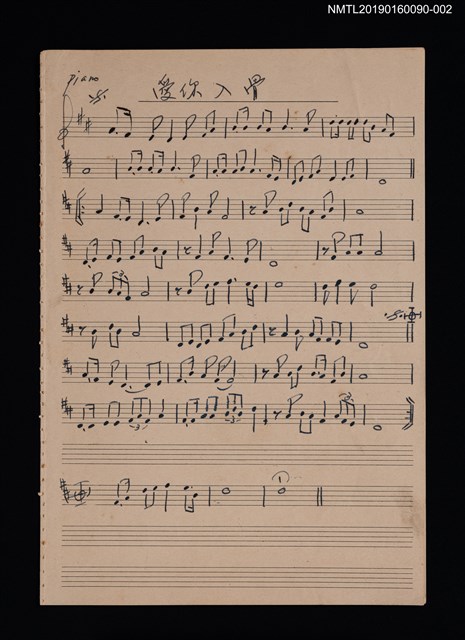 NMTL20190160090-002
piano
愛你入骨